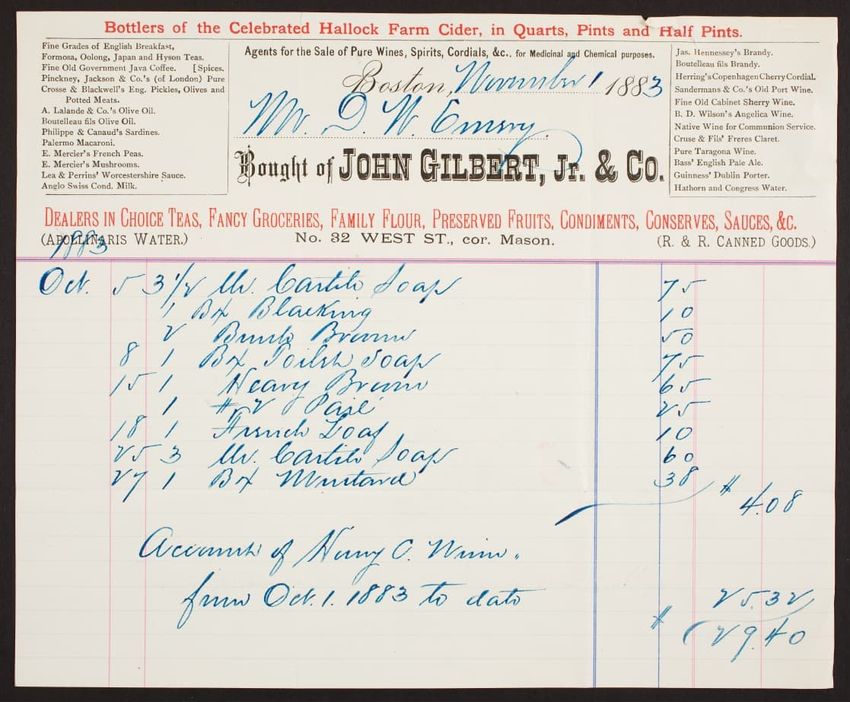 Bottlers of the Celebrated Hallock Farm Cider, in Quarts, Pints and Half Pints.
Fine Grades of English Breakfast,
Formosa, Oolong, Japan and Hyson Teas.
Fine Old Government Java Coffee. [Spices.
Pinckney, Jackson & Co.'s (of London) Pure
Crosse & Blackwell's Eng. Pickles, Olives and
Potted Meats.
A. Lalande & Co.'s Olive Oil.
Boutelleau fils Olive Oil.
Philippe & Canaud's Sardines.
Palermo Macaroni.
E. Mercier's French Peas.
E. Mercier's Mushrooms.
Lea & Perrins' Worcestershire Sauce.
Anglo Swiss Cond. Milk.
Agents for the Sale of Pure Wines, Spirits, Cordials, &c., for Medicinal and Chemical purposes.
Boston, November 1 1883
Mr. D. W. Emery
Bought of JOHN GILBERT, Jr. & Co.
Jas. Hennessey's Brandy.
Boutelleau fils Brandy.
Herring's Copenhagen Cherry Cordial.
Sandermans & Co.'s Old Port Wine.
Fine Old Cabinet Sherry Wine.
B. D. Wilson's Angelica Wine.
Native Wine for Communion Service.
Cruse & Fils' Freres Claret.
Pure Taragona Wine.
Bass' English Pale Ale.
Guinness' Dublin Porter.
Hathorn and Congress Water.
DEALERS IN CHOICE TEAS, FANCY GROCERIES, FAMILY FLOUR, PRESERVED FRUITS, CONDIMENTS, CONSERVES, SAUCES, &C.
(APOLLINARIS WATER.) No. 32 WEST ST., cor. Mason. (R. & R. CANNED GOODS.)
1883
Oct. 5 3 1/2 Castile Soap 75
1 Bx Blacking 10
2 Broom 50
8 1 Bx Toilet Soap 75
15 1 Heavy Broom 65
1 # 2 Pail 25
18 1 French Loaf 10
25 3 Castile Soap 60
27 1 Bx Mustard 38
$ 4.08
Account of Henry C.
from Oct. 1. 1883 to date 25.32
$ 29.40